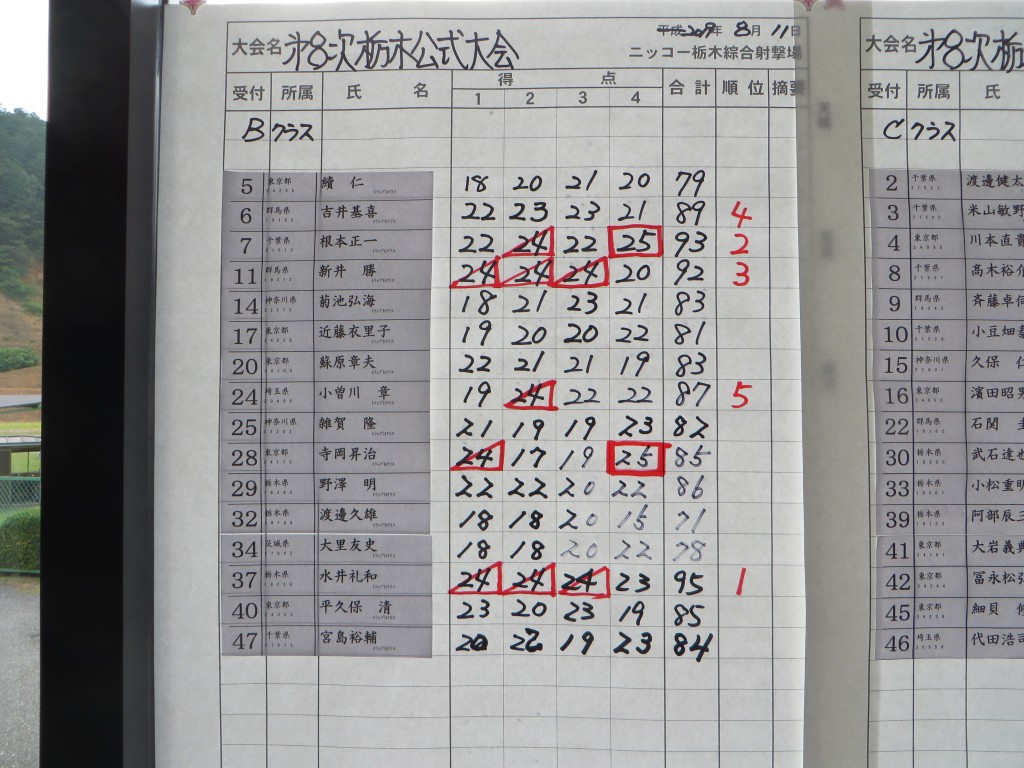 大会名 才8次栃木公式大会 平成 2019年 8月 11日
ニッコー栃木綜合射撃場
受付 所属 氏 名 得 点 合計 順位 摘要
1 2 3 4
B クラス
5 東京都 續 仁 18 20 21 20 79
6 群馬県 吉井基喜 22 23 23 21 89 4
7 千葉県 根本正一 22 24 22 25 93 2
11 群馬県 新井 勝 24 24 24 20 92 3
14 神奈川県 菊池弘海 18 21 23 21 83
17 東京都 近藤衣里子 19 20 20 22 81
20 東京都 蘇原章夫 22 21 21 19 83
24 埼玉県 小曽川 章 19 24 22 22 87 5
25 神奈川県 雑賀 隆 21 19 19 23 82
28 東京都 寺岡昇治 24 17 19 25 85
29 栃木県 野澤 明 22 22 20 22 86
32 栃木県 渡邊久雄 18 18 20 15 71
34 茨城県 大里友史 18 18 20 22 78
37 栃木県 水井礼和 24 24 24 23 95 1
40 東京都 平久保 清 23 20 23 19 85
47 千葉県 宮島裕輔 20 22 19 23 84
大会名 才8次栃
受付 所属 氏
C クラス
2 千葉県 渡邊健太
3 千葉県 米山敏野
4 東京都 川本直貴
8 千葉県 髙木裕介
9 群馬県 斉藤卓伺
10 千葉県 小豆畑恭
15 神奈川県 久保 仁
16 東京都 濱田昭男
22 群馬県 石関
30 東京都 武石達也
33 栃木県 小松重明
39 栃木県 阿部辰三
41 栃木県 大岩義典
42 栃木県 冨永松
45 東京都 細貝 修
46 埼玉県 代田浩司